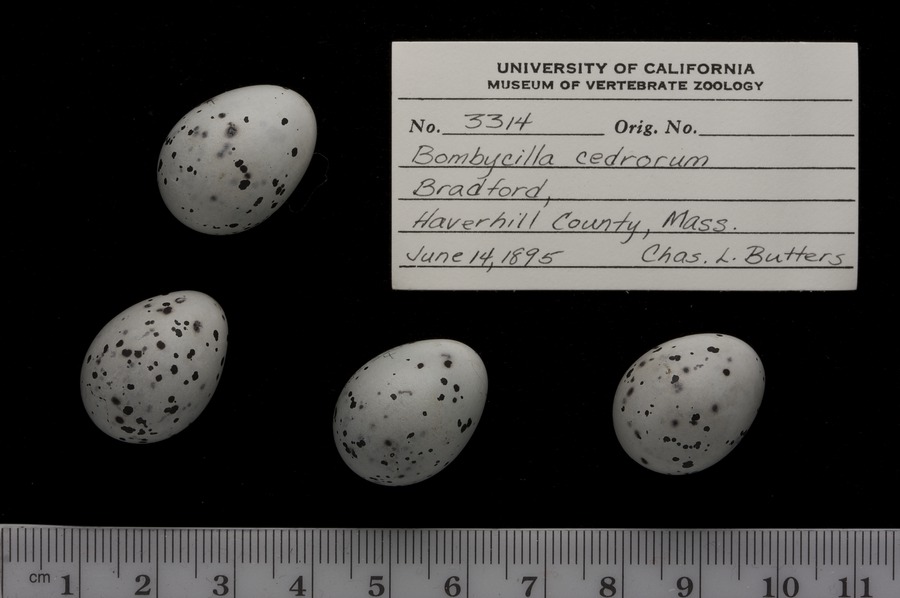 UNIVERSITY OF CALIFORNIA
MUSEUM OF VERTEBRATE ZOOLOGY
No. 3314 Orig. No.
Bombycilla cedrorum
Bradford,
Haverhill County, Mass.
June 14, 1895 Chas. L. Butters
cm 1 2 3 4 5 6 7 8 9 10 11